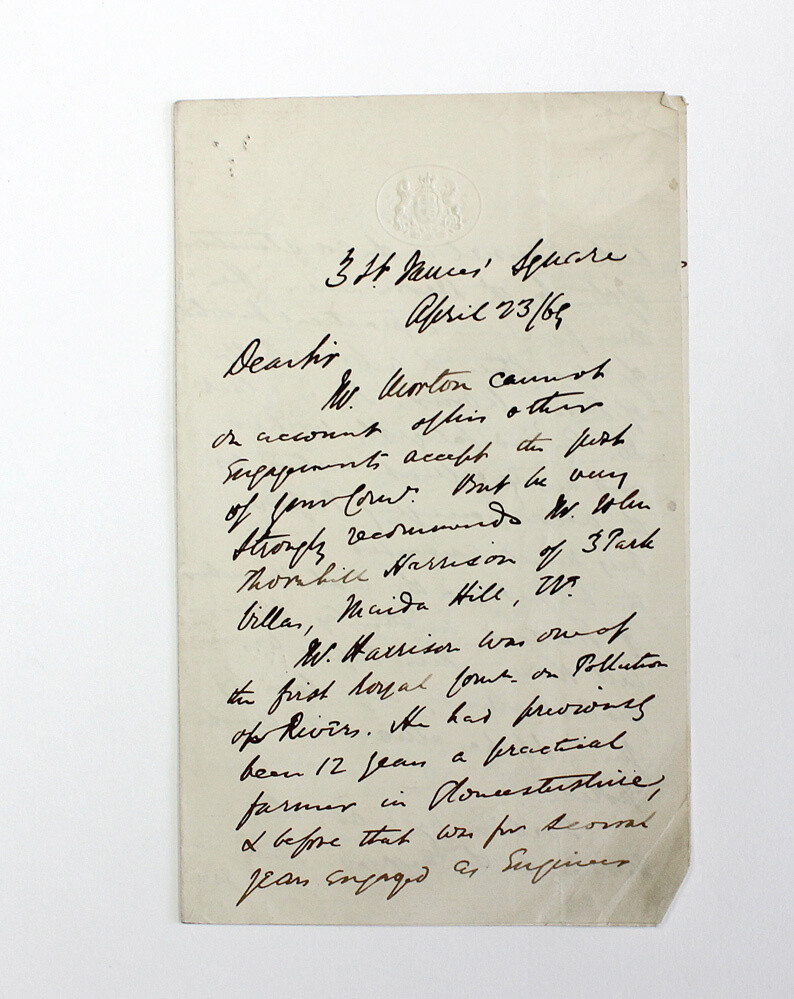 3 St. James' Square
April 23/69
Dear Sir
Mr. Morton cannot
on account of his other
Engagements accept the post
of your Comr. But he very
strongly recommends Mr. John
Thornhill Harrison of 3 Park
Villas, Maida Hill, W.
Mr. Harrison was one of
the first Royal Comrs. on Pollution
of Rivers. He had previously
been 12 years a practical
farmer in Gloucestershire,
& before that was for several
years engaged as Engineer